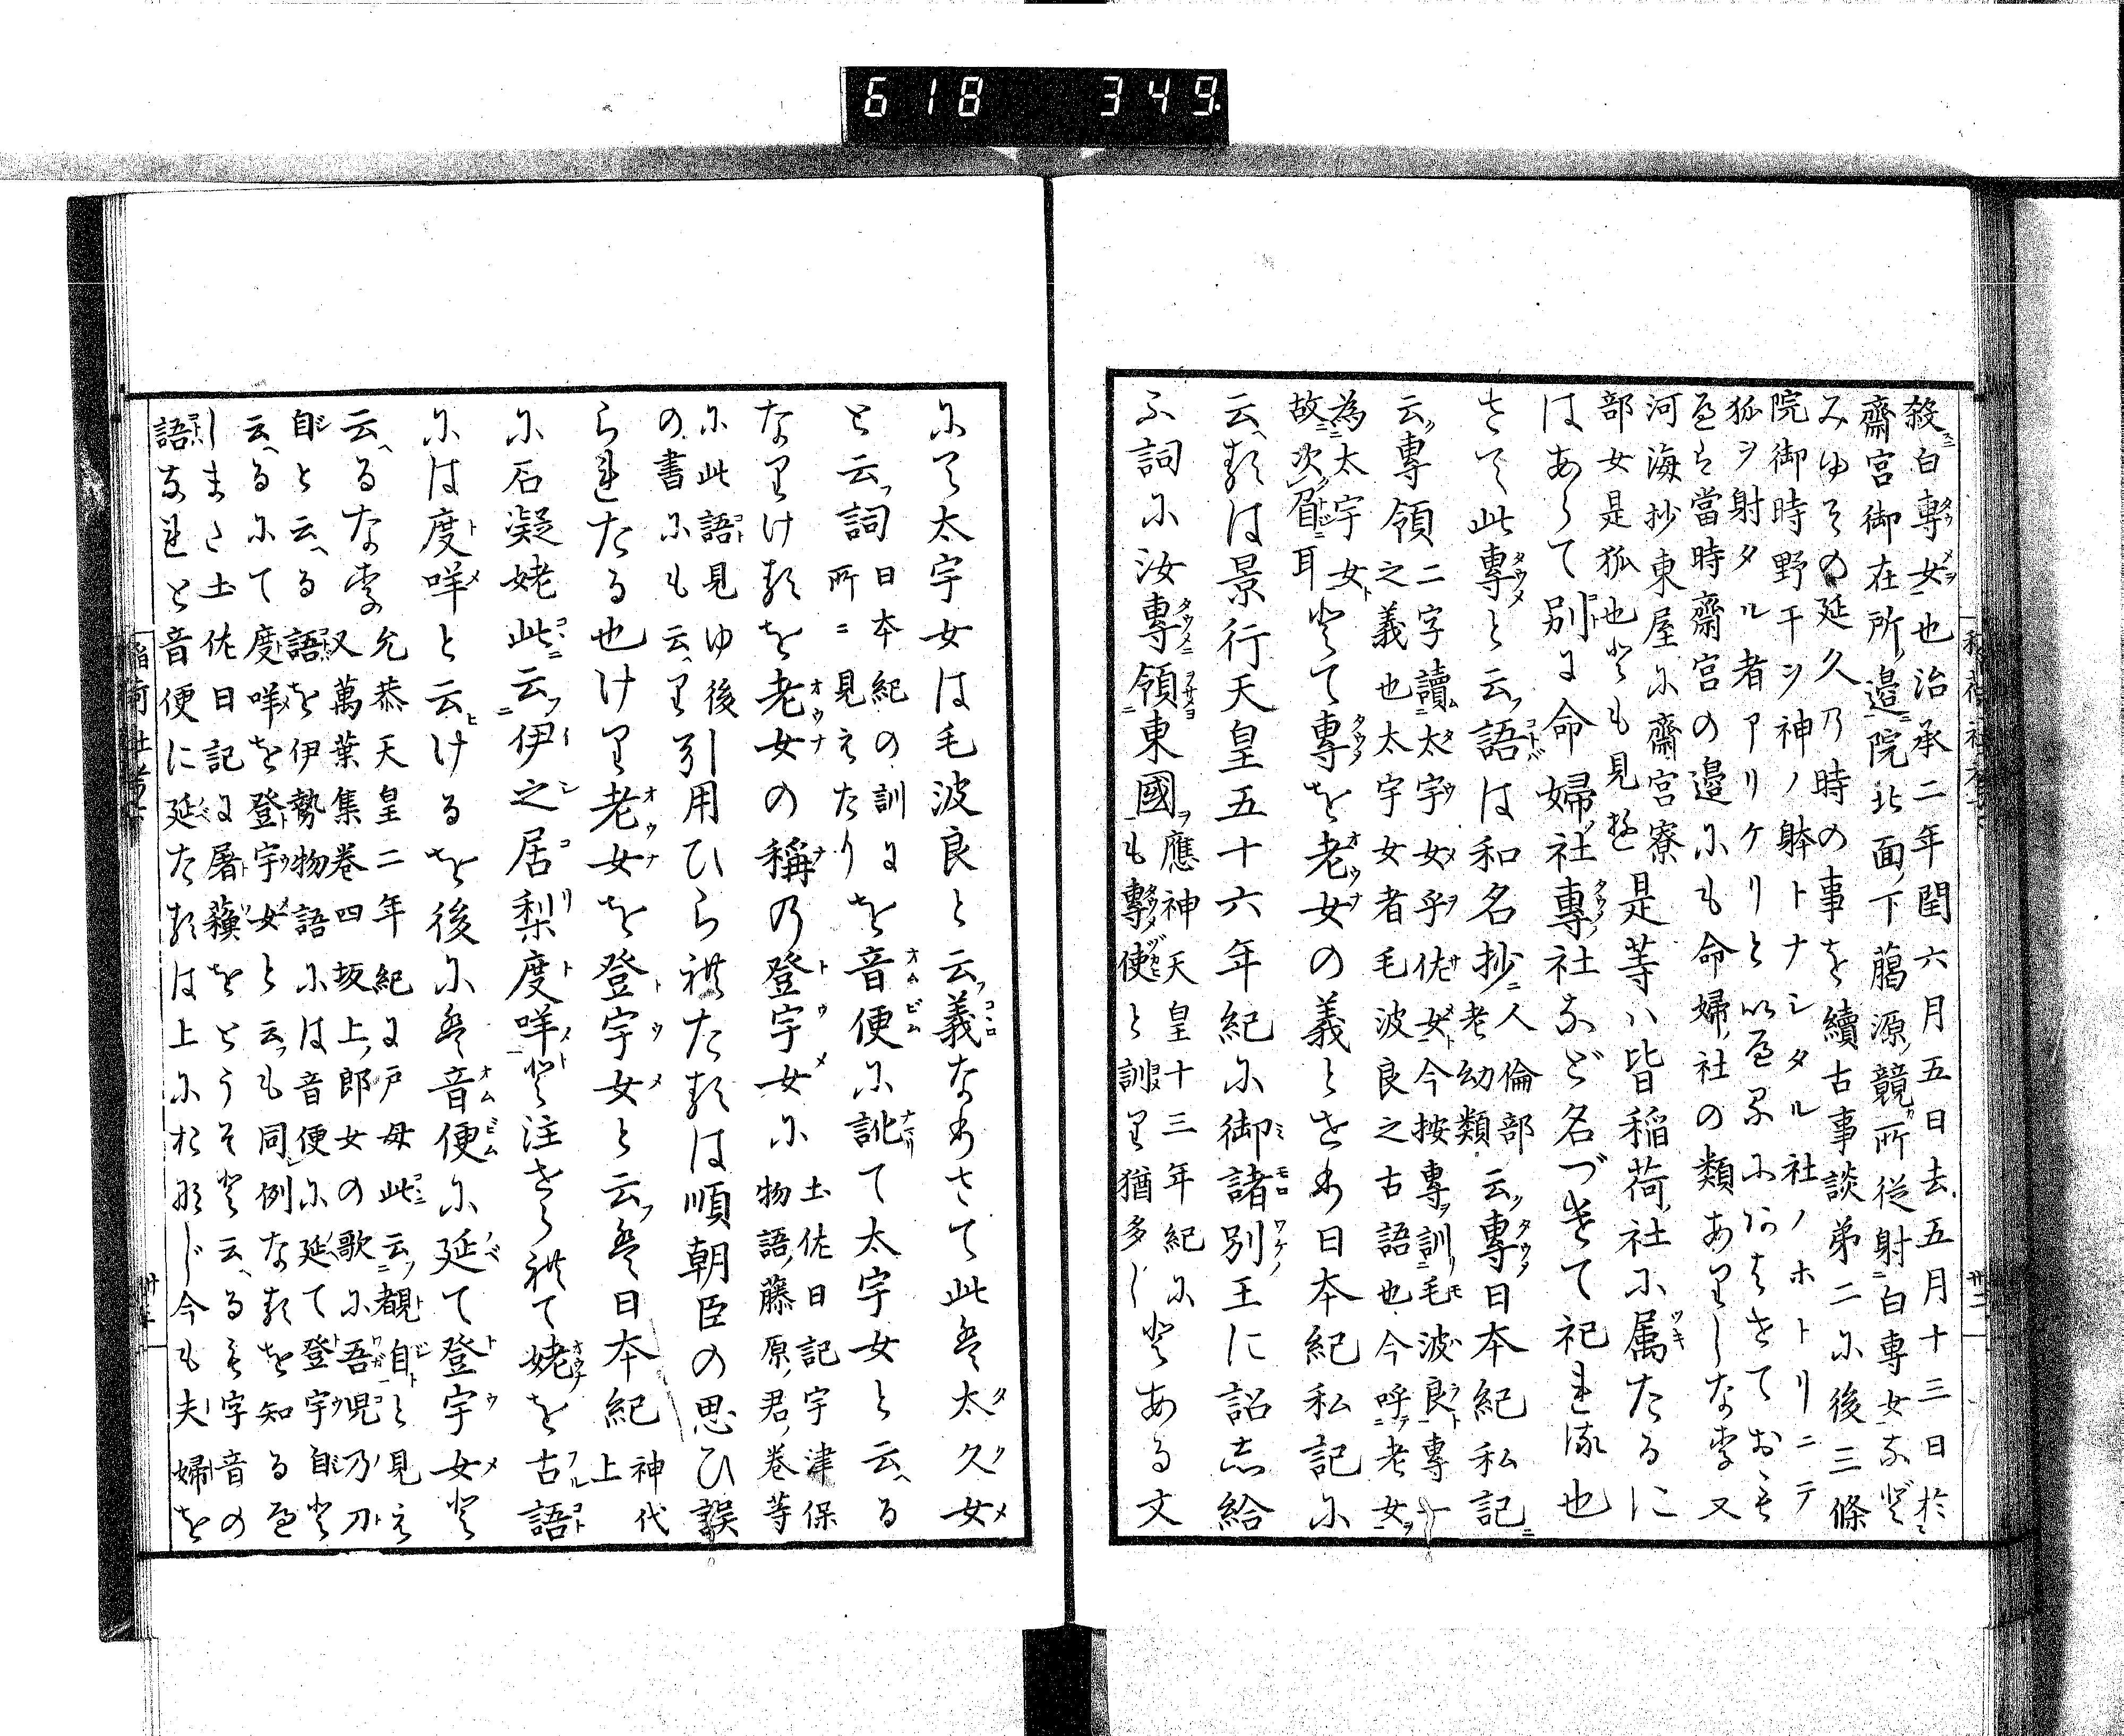 618 349
殺白專女也治承二年閏六月五日去五月十三日於
齋宮御在所邉院北面下﨟源競所従射白專女など
みゆその延久乃時の事を續古事談第二に後三條
院御時野干ヲ神ノ躰トナシタル社ノホトリニテ
狐ヲ射タル者アリケリと
當時齋宮の邉にも命婦社の類ありしなるべし又
河海抄東屋に齋宮寮
部女是狐也とも見
是等ハ皆稲荷社に属たるに
はあらて別に命婦社專社など名づけて祀れる也
さて此專と云語は和名抄人倫部老幼類云專日本紀私記
云專領二字讀太宇女乎佐女今按專訓毛波良專一
之義也太宇女者毛波良之古語也今呼老女
為太宇女
故次眉耳とて專を老女の義とせり日本紀私記に
云るは景行天皇五十六年紀に御諸別王に詔し給
ふ詞に汝專領東國應神天皇十三年紀に
も專使と訓り猶多しとある文
にて太宇女は毛波良と云義なりさて此は太久女
と云詞日本紀の訓に
所ニ見えたりを音便に訛て太宇女と云る
なりけるを老女の稱の登宇女に土佐日記宇津保
物語藤原君巻等
に此語見ゆ後
の書にも云り引用ひられたるは順朝臣の思ひ誤
られたる也けり老女を登宇女と云は日本紀神代
上
に石凝姥此云伊之居梨度咩と注されて姥を古語
には度咩と云けるを後に音便に延て登宇女と
云るなり允恭天皇二年紀に戸母此云覩自と見え
又萬葉集巻四坂上郎女の歌に吾兒乃刀
自と云る語を伊勢物語には音便に延て登宇自と
云るにて度咩を登宇女と云も同例なるを知るべ
しまた土佐日記に屠蘓をとうそと云るは字音の
語なれと音便に延たるは上におなじ今も夫婦を
稲荷社考下